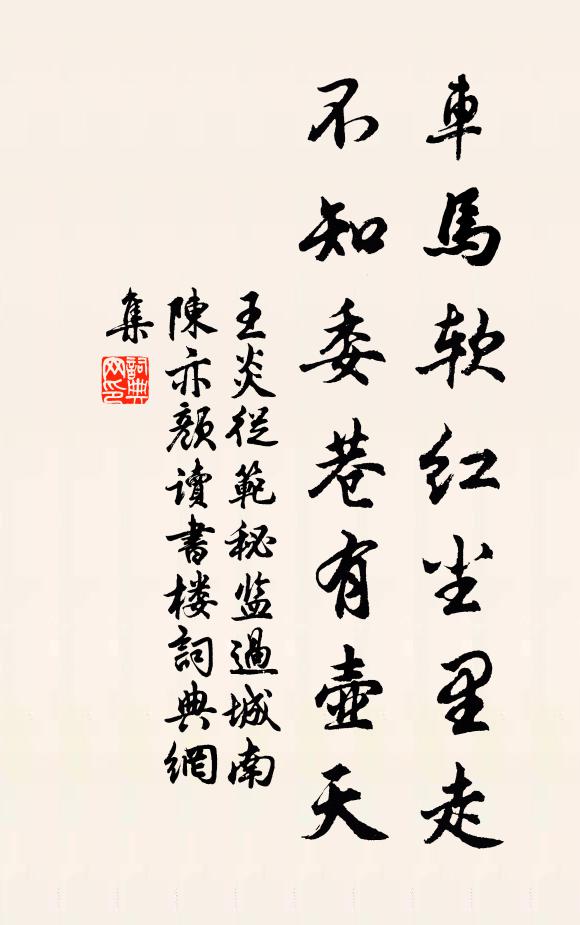 車馬软红尘里走
不知委巷有壶天
王炎從範秘监過城南
陳亦顏讀書楼詞典網
集
詞典
网印